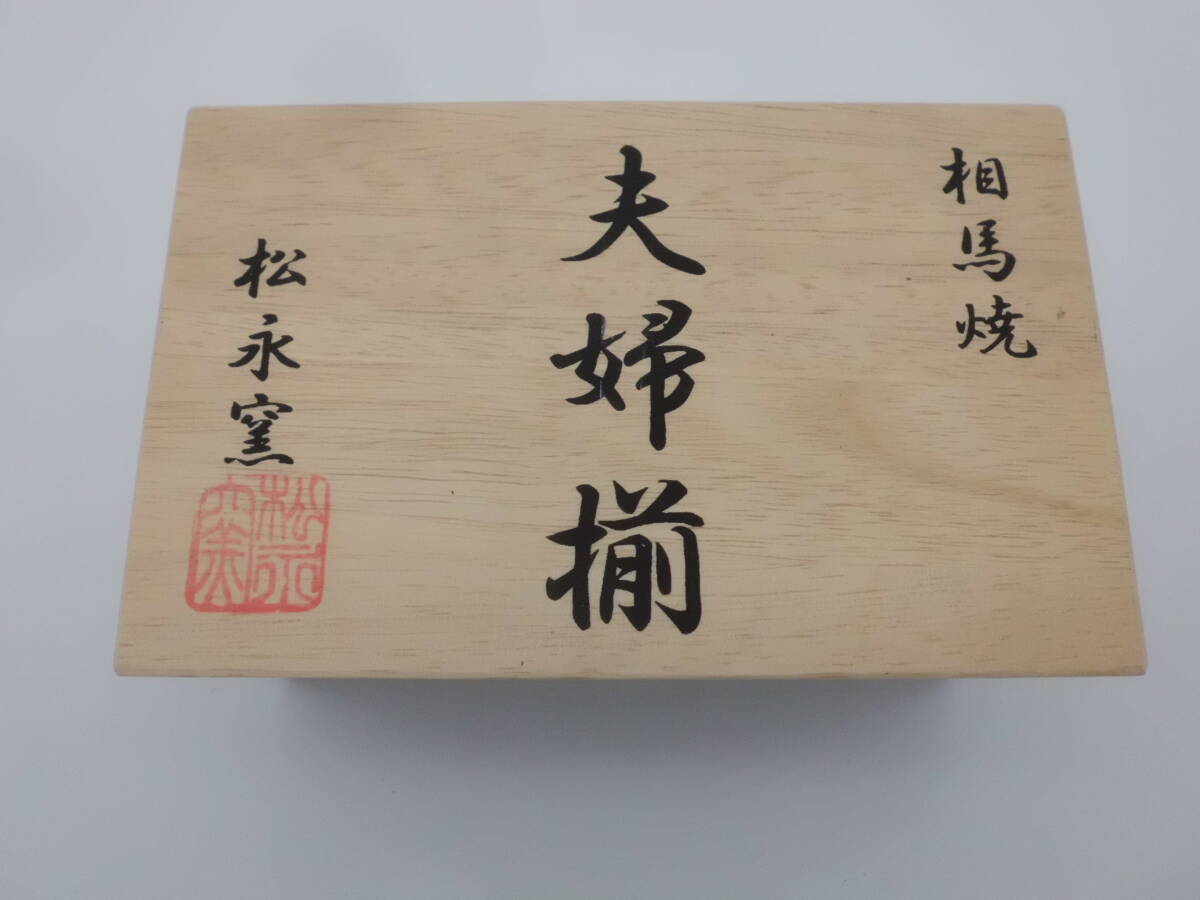 相馬焼
夫婦揃
松永窯
松永窯